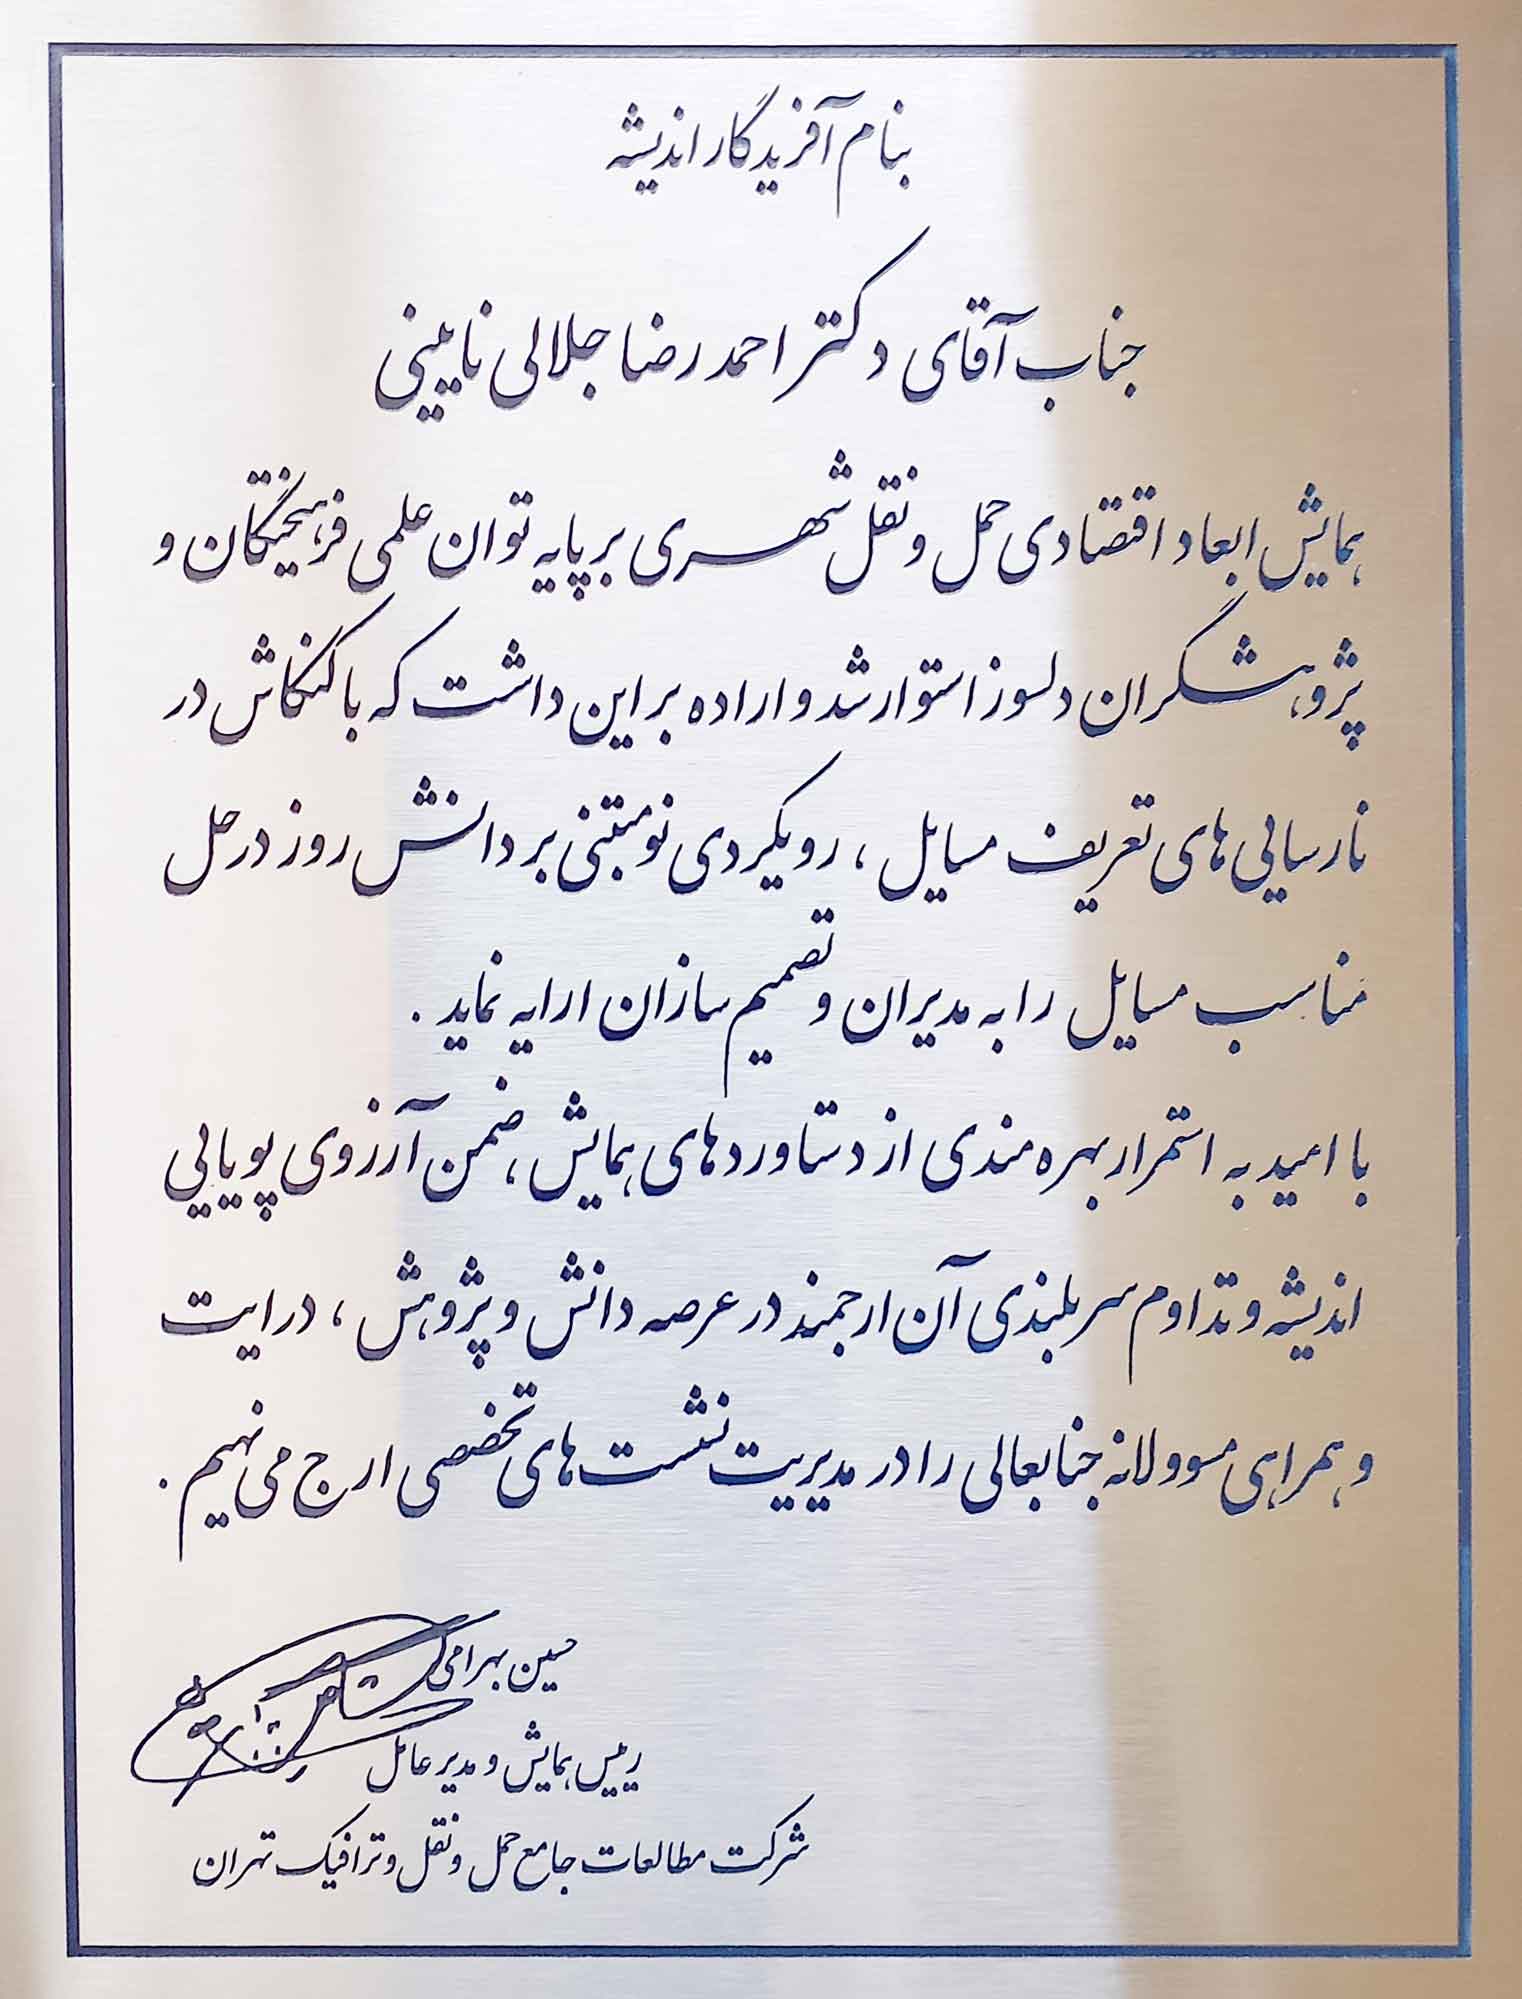 بنام آفریدگار اندیشه
جناب آقای دکتر احمد رضا جلالی نایینی
همایش ابعاد اقتصادی حمل و نقل شهری بر پایه توان علمی فرهیختگان و
پژوهشگران دلسوز استوار شد و اراده بر این داشت که با کنکاش در
نارسایی های تعریف مسایل ، رویکردی نو مبتنی بر دانش روز در حل
مناسب مسایل را به مدیران و تصمیم سازان ارایه نماید .
با امید به استمرار بهره مندی از دستاوردهای همایش ، ضمن آرزوی پویایی
اندیشه و تداوم سربلندی آن ارجمند در عرصه دانش و پژوهش ، درایت
و همراهی مسوولانه جنابعالی را در مدیریت نشست های تخصصی ارج می نهیم .
حسین بهرامی
رییس همایش و مدیر عامل
شرکت مطالعات جامع حمل و نقل و ترافیک تهران